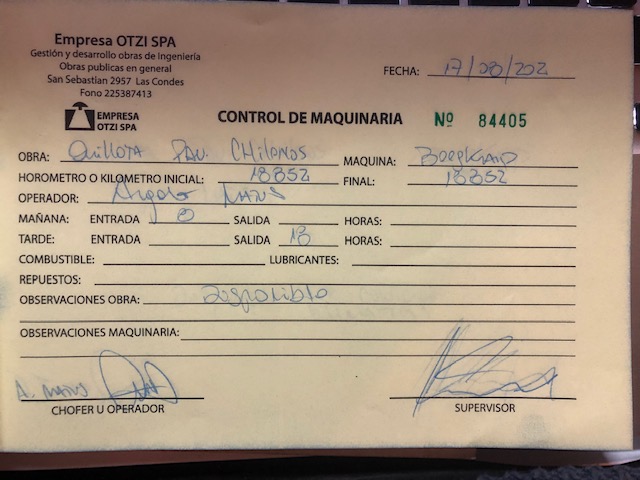 Empresa OTZI SPA
Gestión y desarrollo obras de ingeniería
Obras publicas en general
San Sebastian 2957 Las Condes
Fono 225387413
FECHA: 17/08/202
EMPRESA
OTZI SPA
CONTROL DE MAQUINARIA Nº 84405
OBRA: Quillota Pav. CHilonos MAQUINA:
HOROMETRO O KILOMETRO INICIAL: 18852 FINAL: 18852
OPERADOR:
MAÑANA: ENTRADA 8 SALIDA HORAS:
TARDE: ENTRADA SALIDA 18 HORAS:
COMBUSTIBLE: LUBRICANTES:
REPUESTOS:
OBSERVACIONES OBRA: Disponible
OBSERVACIONES MAQUINARIA:
CHOFER U OPERADOR SUPERVISOR